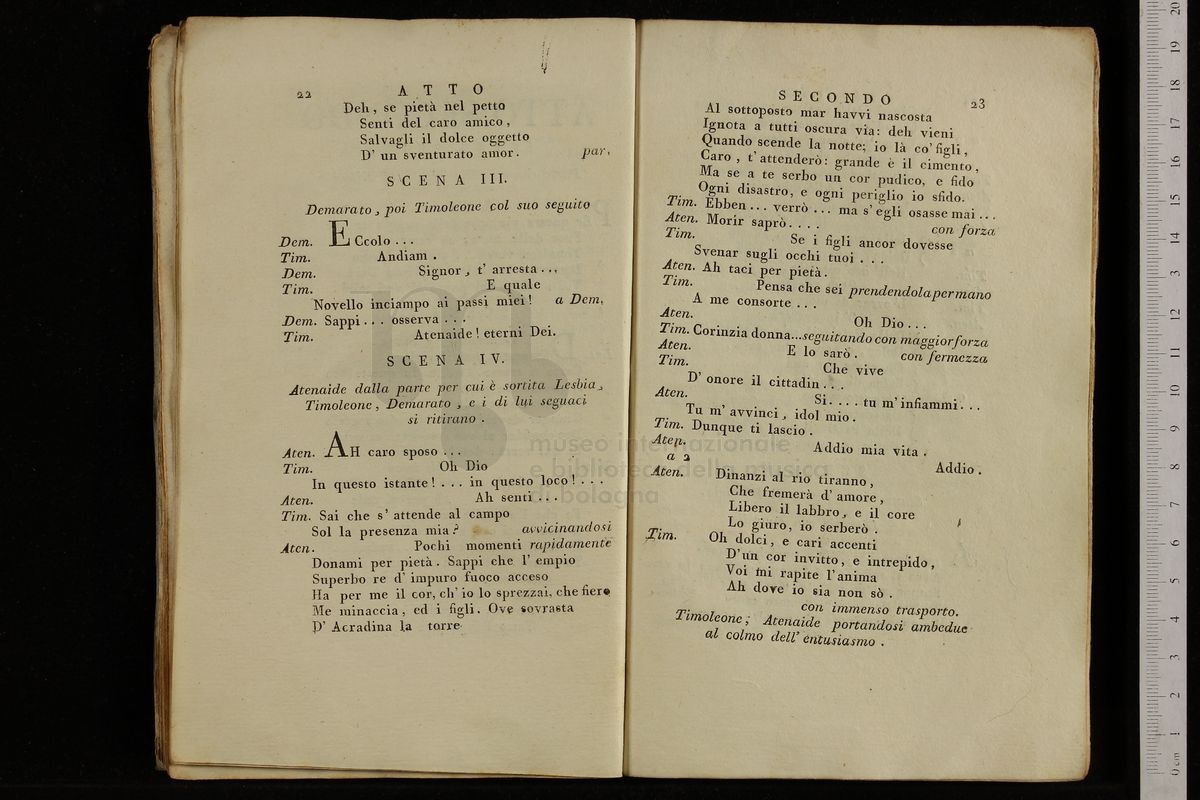 22
ATTO
Deh, se pietà nel petto
Senti del caro amico,
Salvagli il dolce oggetto
D' un sventurato amor. par,
SCENA III.
Demarato, poi Timoleone col suo seguito
Dem. ECcolo ...
Tim. Andiam.
Dem. Signor, t' arresta ...
Tim. E quale
Novello inciampo ai passi miei! a Dem,
Dem. Sappi... osserva ...
Tim. Atenaide! eterni Dei.
SCENA IV.
Atenaide dalla parte per cui è sortita Lesbia,
Timoleone, Demarato, e i di lui seguaci
si ritirano.
Aten. AH caro sposo ...
Tim. Oh Dio
In questo istante! ... in questo loco! ...
Aten. Ah senti ...
Tim. Sai che s' attende al campo
Sol la presenza mia? avvicinandosi
Aten. Pochi momenti rapidamente
Donami per pietà. Sappi che l' empio
Superbo re d' impuro fuoco acceso
Ha per me il cor, ch' io lo sprezzai, che fiero
Me minaccia, ed i figli. Ove sovrasta
D' Acradina la torre
SECONDO
23
Al sottoposto mar havvi nascosta
Ignota a tutti oscura via: deh vieni
Quando scende la notte; io là co' figli,
Caro, t' attenderò: grande è il cimento,
Ma se a te serbo un cor pudico, e fido
Ogni disastro, e ogni periglio io sfido.
Tim. Ebben ... verrò ... ma s' egli osasse mai ...
Aten. Morir saprò.... con forza
Tim. Se i figli ancor dovesse
Svenar sugli occhi tuoi ...
Aten. Ah taci per pietà.
Tim. Pensa che sei prendendola per mano
A me consorte ...
Aten. Oh Dio...
Tim. Corinzia donna...seguitando con maggior forza
Aten. E lo sarò. con fermezza
Tim. Che vive
D' onore il cittadin ...
Aten. Si.... tu m' infiammi...
Tu m' avvinci, idol mio.
Tim. Dunque ti lascio.
Aten. Addio mia vita.
a 2 Addio.
Aten. Dinanzi al rio tiranno,
Che fremerà d' amore,
Libero il labbro, e il core
Lo giuro, io serberò.
Tim. Oh dolci, e cari accenti
D' un cor invitto, e intrepido,
Voi mi rapite l' anima
Ah dove io sia non sò.
con immenso trasporto.
Timoleone; Atenaide portandosi ambedue
al colmo dell' entusiasmo.
museo internazionale
e biblioteca della musica
di bologna
0 cm 1 2 3 4 5 6 7 8 9 10 11 12 13 14 15 16 17 18 19 20